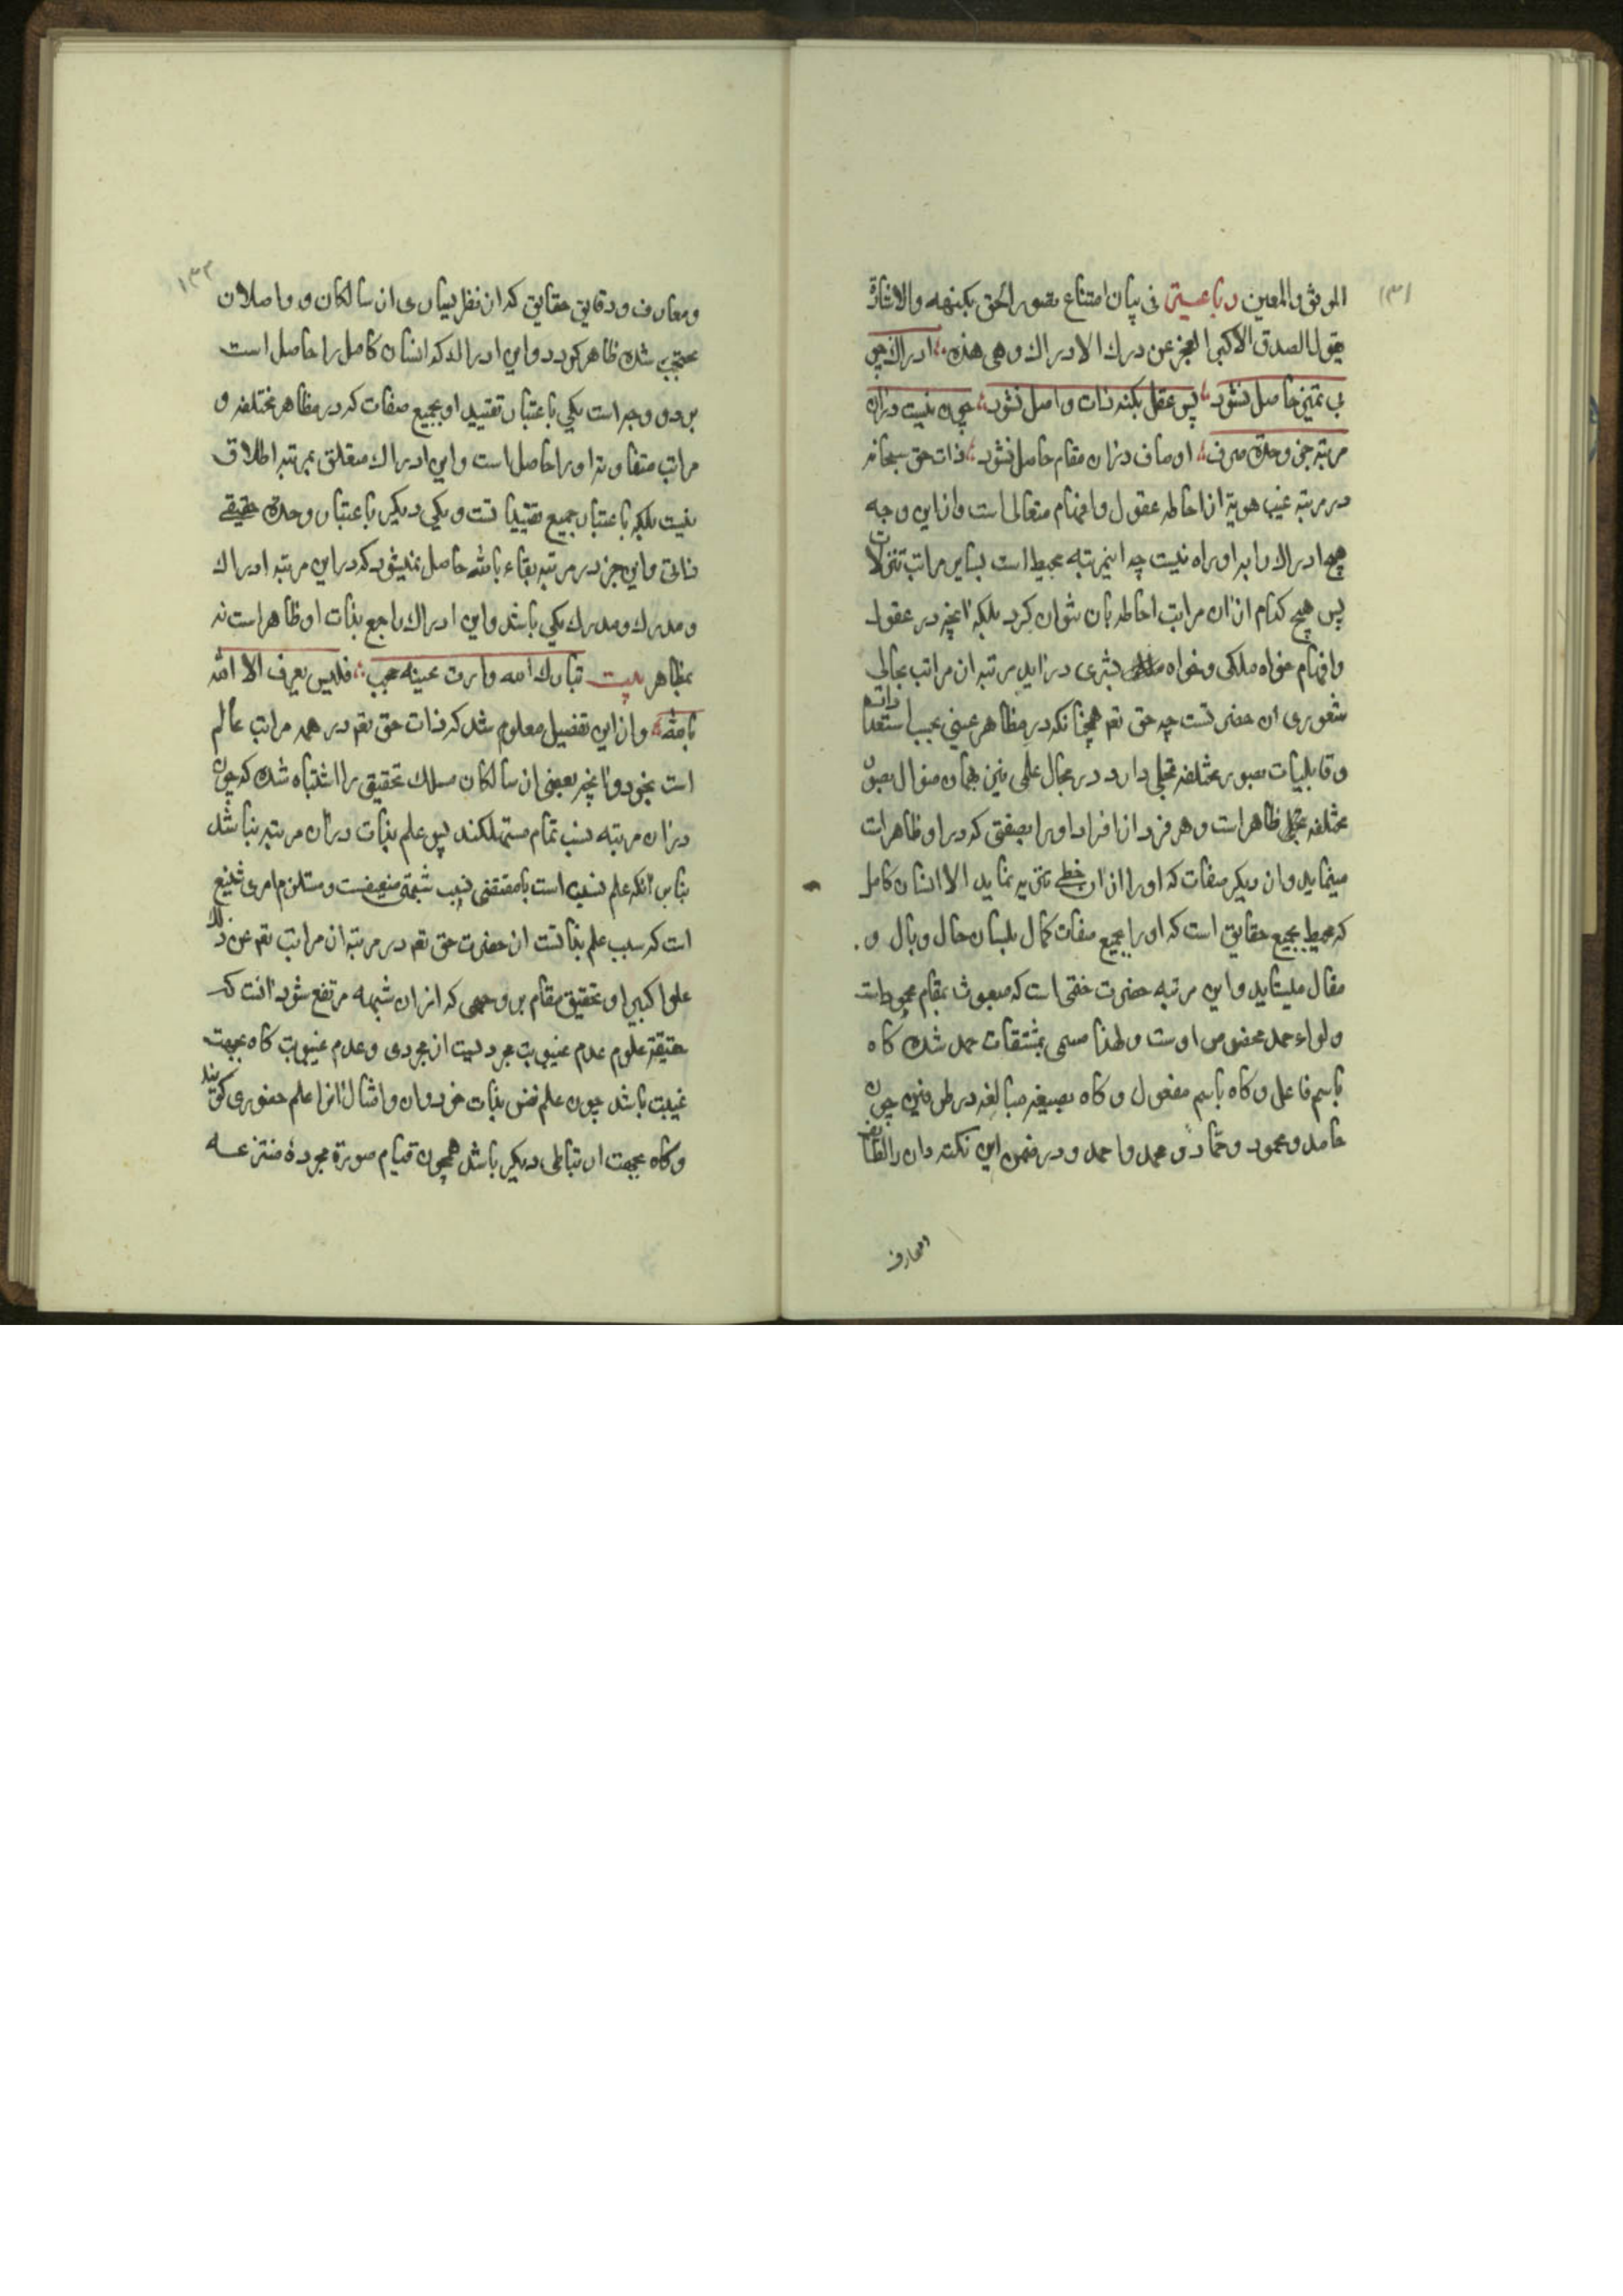 ۱۳۱
الموثق والمعین رباعیتی فی بیان امتناع تصور الحق بکنهه والاشارة
بقول الصدق الاکبر العجز عن درک الادراک وهی هذه ؛ ادراک چو
بی تمیّز حاصل نشود ؛ پس عقل بکنه ذات واصل نشود ؛ چون نیست دران
مرتبه جز وحدت صرف ؛ اوصاف دران مقام حاصل نشود ؛ ذات حق سبحانه
در مرتبه غیب هویة از احاطه عقول وافهام متعالی است واز این وجه
هیچ ادراک را بر او راه نیست چه اینمرتبه محیط است بسایر مراتب تنزلات
پس هیچ کدام از ان مراتب احاطه بان نتوان کرد بلکه آنچه در عقول
وافهام خواه ملکی وخواه بشری دراید مرتبه از مراتب مجالی
شعوری ان حضرتست چه حق تعم همچنانکه در مظاهر عینی بحسب استعدادات
وقابلیات بصور مختلفه تجلی دارد در مجال علمی نیز بهمان منوال بصور
مختلفه متجلی ظاهر است وهر فرد از افراد او را بصفتی که در او ظاهر است
مینماید واز دیگر صفات که او را از ان حظی نیست تنزیه نماید الا انسان کامل
که محیط بجمیع حقایق است که او را بجمیع صفات کمال بلسان حال وبال و
مقال میستاید واین مرتبه حضرت ختمی است که مبعوث بمقام محمود است
ولواء حمد مخصوص اوست ولهذا مسمی بمشتقات حمد شده گاه
باسم فاعل وگاه باسم مفعول وگاه بصیغه مبالغه در طرفین چون
حامد ومحمود وحمّاد ومحمد واحمد ودر ضمن این نکته دان را لطائف
المعارف
۱۳۲
ومعارف ودقایق حقایق که از نظر بسیاری از سالکان وواصلان
محتجب شده ظاهر گردد واین ادراک که انسان کامل را حاصل است
بر دو وجه است یکی باعتبار تقیید او بجمیع صفات که در مظاهر مختلفه و
مراتب متفاوته او را حاصل است واین ادراک متعلق بمرتبه اطلاق
نیست بلکه باعتبار جمیع تقییداتست ویکی دیگر باعتبار وحدت حقیقی
ذاتی واین جز در مرتبه بقاء بالله حاصل نمیشود که در این مرتبه ادراک
ومدرک ومدرک یکی باشد واین ادراک راجع بذات او ظاهر است نه
بمظاهر بیت تبارک الله وارت عینه حجب ؛ فلیس یعرف الا الله
بالله ؛ واز این تفصیل معلوم شد که ذات حق تعم در همه مراتب عالم
است بخود وآنچه بعضی از سالکان مسلک تحقیق را اشتباه شده که چون
دران مرتبه نسب تمام مستهلکند پس علم بذات دران مرتبه نباشد
بنابر آنکه علم نسبت است یا مقتضی نسب شبهة ضعیفست ومستلزم امری شنیع
است که سلب علم بذاتست از حضرت حق تعم در مرتبه از مراتب تعم عن ذلک
علوا کبیرا وتحقیق مقام بر وجهی که از ان شبهه مرتفع شود آنست که
حقیقة علوم عدم غیوبت مجردیست از مجردی وعدم غیوبت گاه بجهت
عینیت باشد چون علم نفس بذات خود وان وامثال انرا علم حضوری گویند
وگاه بجهت ارتباطی دیگر باشد همچون قیام صورة مجردهٔ منتزعه